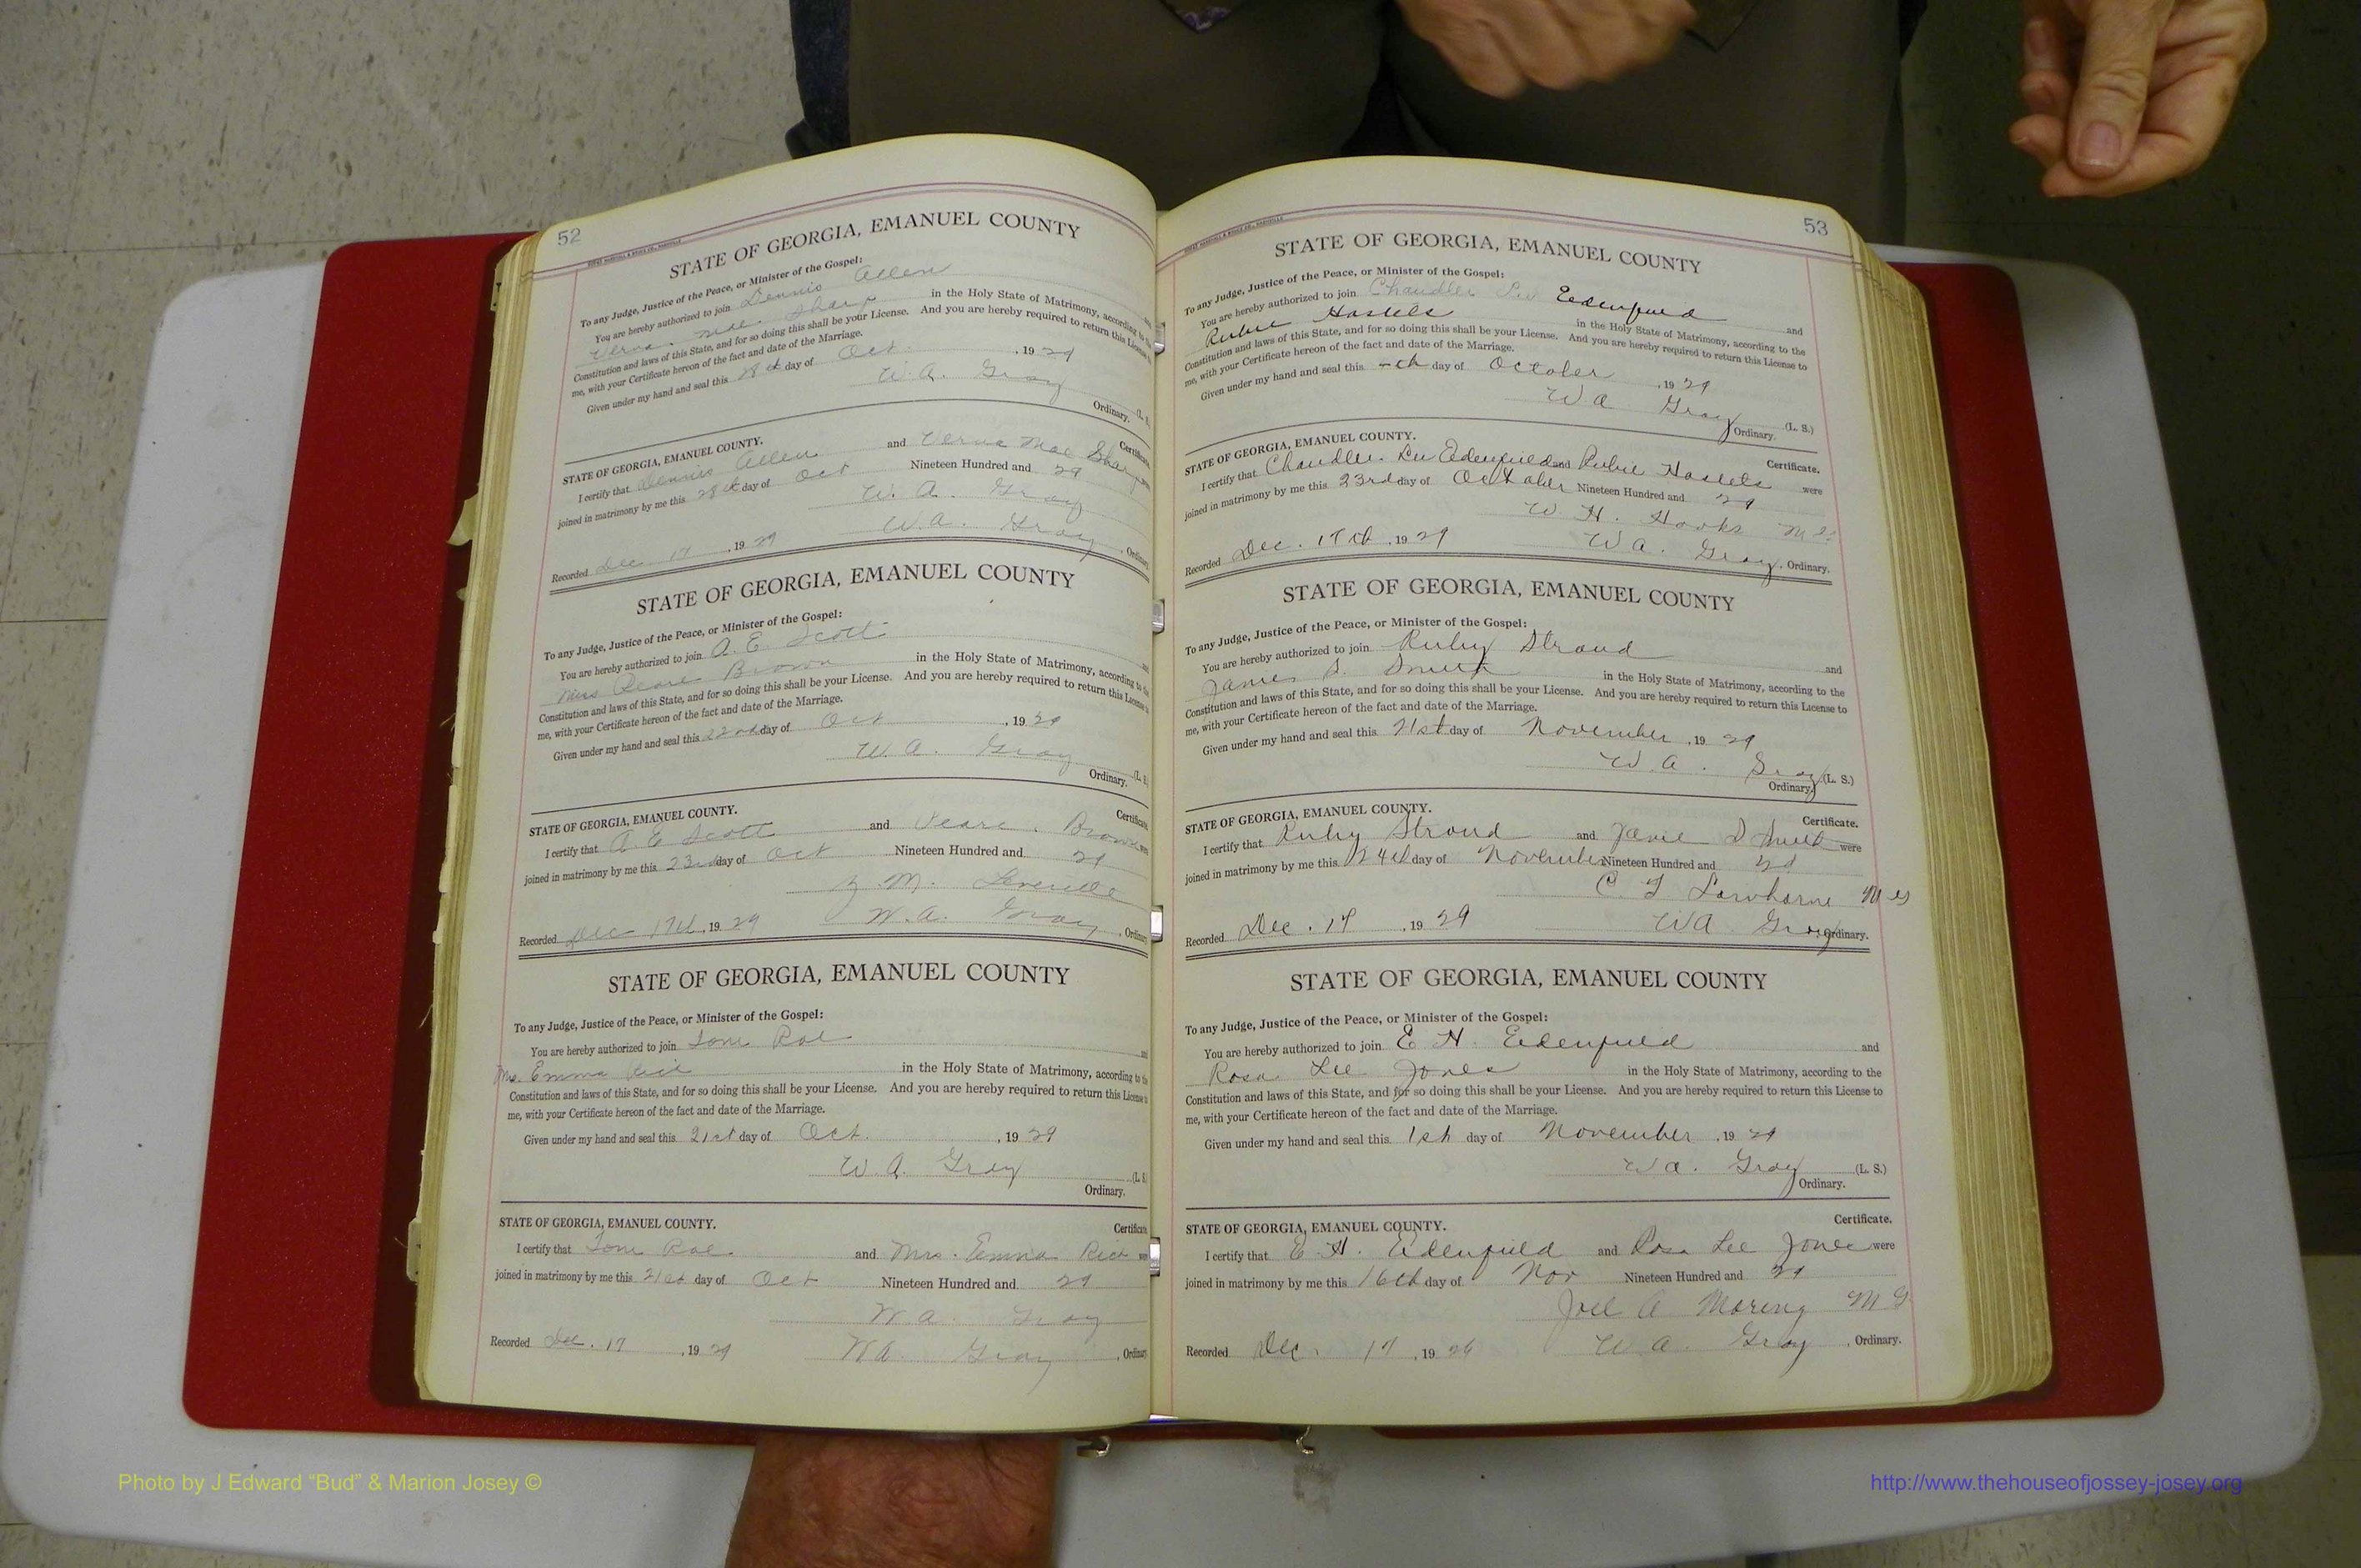 52
STATE OF GEORGIA, EMANUEL COUNTY
To any Judge, Justice of the Peace, or Minister of the Gospel:
You are hereby authorized to join Dennis Allen
Verna Mae Sharp in the Holy State of Matrimony, according to the
Constitution and laws of this State, and for so doing this shall be your License. And you are hereby required to return this License
me, with your Certificate hereon of the fact and date of the Marriage.
Given under my hand and seal this 28th day of Oct. , 19 29
W. A. Gray (L. S.
Ordinary.
STATE OF GEORGIA, EMANUEL COUNTY. Certificate.
I certify that Dennis Allen and Verna Mae Sharp
joined in matrimony by me this 28th day of Oct Nineteen Hundred and 29
W. A. Gray
Recorded Dec 17 , 19 29 W. A. Gray , Ordinary
STATE OF GEORGIA, EMANUEL COUNTY
To any Judge, Justice of the Peace, or Minister of the Gospel:
You are hereby authorized to join A. E. Scott and
Brown in the Holy State of Matrimony, according to the
Constitution and laws of this State, and for so doing this shall be your License. And you are hereby required to return this License
me, with your Certificate hereon of the fact and date of the Marriage.
Given under my hand and seal this 22nd day of Oct , 19 29
W. A. Gray (L. S.
Ordinary.
STATE OF GEORGIA, EMANUEL COUNTY. Certificate.
I certify that A. E Scott and Brown were
joined in matrimony by me this 23rd day of Oct Nineteen Hundred and 29
M.
Recorded Dec 17th , 19 29 W. A. Gray , Ordinary
STATE OF GEORGIA, EMANUEL COUNTY
To any Judge, Justice of the Peace, or Minister of the Gospel:
You are hereby authorized to join Tom Roe and
Mrs. Emma Rice in the Holy State of Matrimony, according to the
Constitution and laws of this State, and for so doing this shall be your License. And you are hereby required to return this License to
me, with your Certificate hereon of the fact and date of the Marriage.
Given under my hand and seal this 21st day of Oct. , 19 29
W. A. Gray (L. S.
Ordinary.
STATE OF GEORGIA, EMANUEL COUNTY. Certificate.
I certify that Tom Roe and Mrs. Emma Rice were
joined in matrimony by me this 21st day of Oct Nineteen Hundred and 29
W. A. Gray
Recorded Dec. 17 , 19 29 W A. Gray , Ordinary
53
STATE OF GEORGIA, EMANUEL COUNTY
To any Judge, Justice of the Peace, or Minister of the Gospel:
You are hereby authorized to join Chandler Lee Edenfield and
Rubie in the Holy State of Matrimony, according to the
Constitution and laws of this State, and for so doing this shall be your License. And you are hereby required to return this License to
me, with your Certificate hereon of the fact and date of the Marriage.
Given under my hand and seal this -th day of October , 19 29
W. A. Gray (L. S.)
Ordinary.
STATE OF GEORGIA, EMANUEL COUNTY. Certificate.
I certify that Chandler Lee Edenfield and Rubie were
joined in matrimony by me this 23rd day of October Nineteen Hundred and 29
W. H. Hooks
Recorded Dec. 17th , 19 29 W A. Gray , Ordinary.
STATE OF GEORGIA, EMANUEL COUNTY
To any Judge, Justice of the Peace, or Minister of the Gospel:
You are hereby authorized to join Ruby Stroud and
James S. Smith in the Holy State of Matrimony, according to the
Constitution and laws of this State, and for so doing this shall be your License. And you are hereby required to return this License to
me, with your Certificate hereon of the fact and date of the Marriage.
Given under my hand and seal this 21st day of November , 19 29
W. A. Gray (L. S.)
Ordinary.
STATE OF GEORGIA, EMANUEL COUNTY. Certificate.
I certify that Ruby Stroud and Smith were
joined in matrimony by me this 24th day of November Nineteen Hundred and 29
C Lawhorne
Recorded Dec. 17 , 19 29 W A Gray , Ordinary.
STATE OF GEORGIA, EMANUEL COUNTY
To any Judge, Justice of the Peace, or Minister of the Gospel:
You are hereby authorized to join E H. Edenfield and
Rosa Lee Jones in the Holy State of Matrimony, according to the
Constitution and laws of this State, and for so doing this shall be your License. And you are hereby required to return this License to
me, with your Certificate hereon of the fact and date of the Marriage.
Given under my hand and seal this 1st day of November , 19 29
W a. Gray (L. S.)
Ordinary.
STATE OF GEORGIA, EMANUEL COUNTY. Certificate.
I certify that E. H. Edenfield and Rosa Lee Jones were
joined in matrimony by me this 16th day of Nov Nineteen Hundred and 29
Joel A M G
Recorded Dec. 17 , 19 W A. Gray , Ordinary.
Photo by J Edward “Bud” & Marion Josey ©
http://www.thehouseofjossey-josey.org